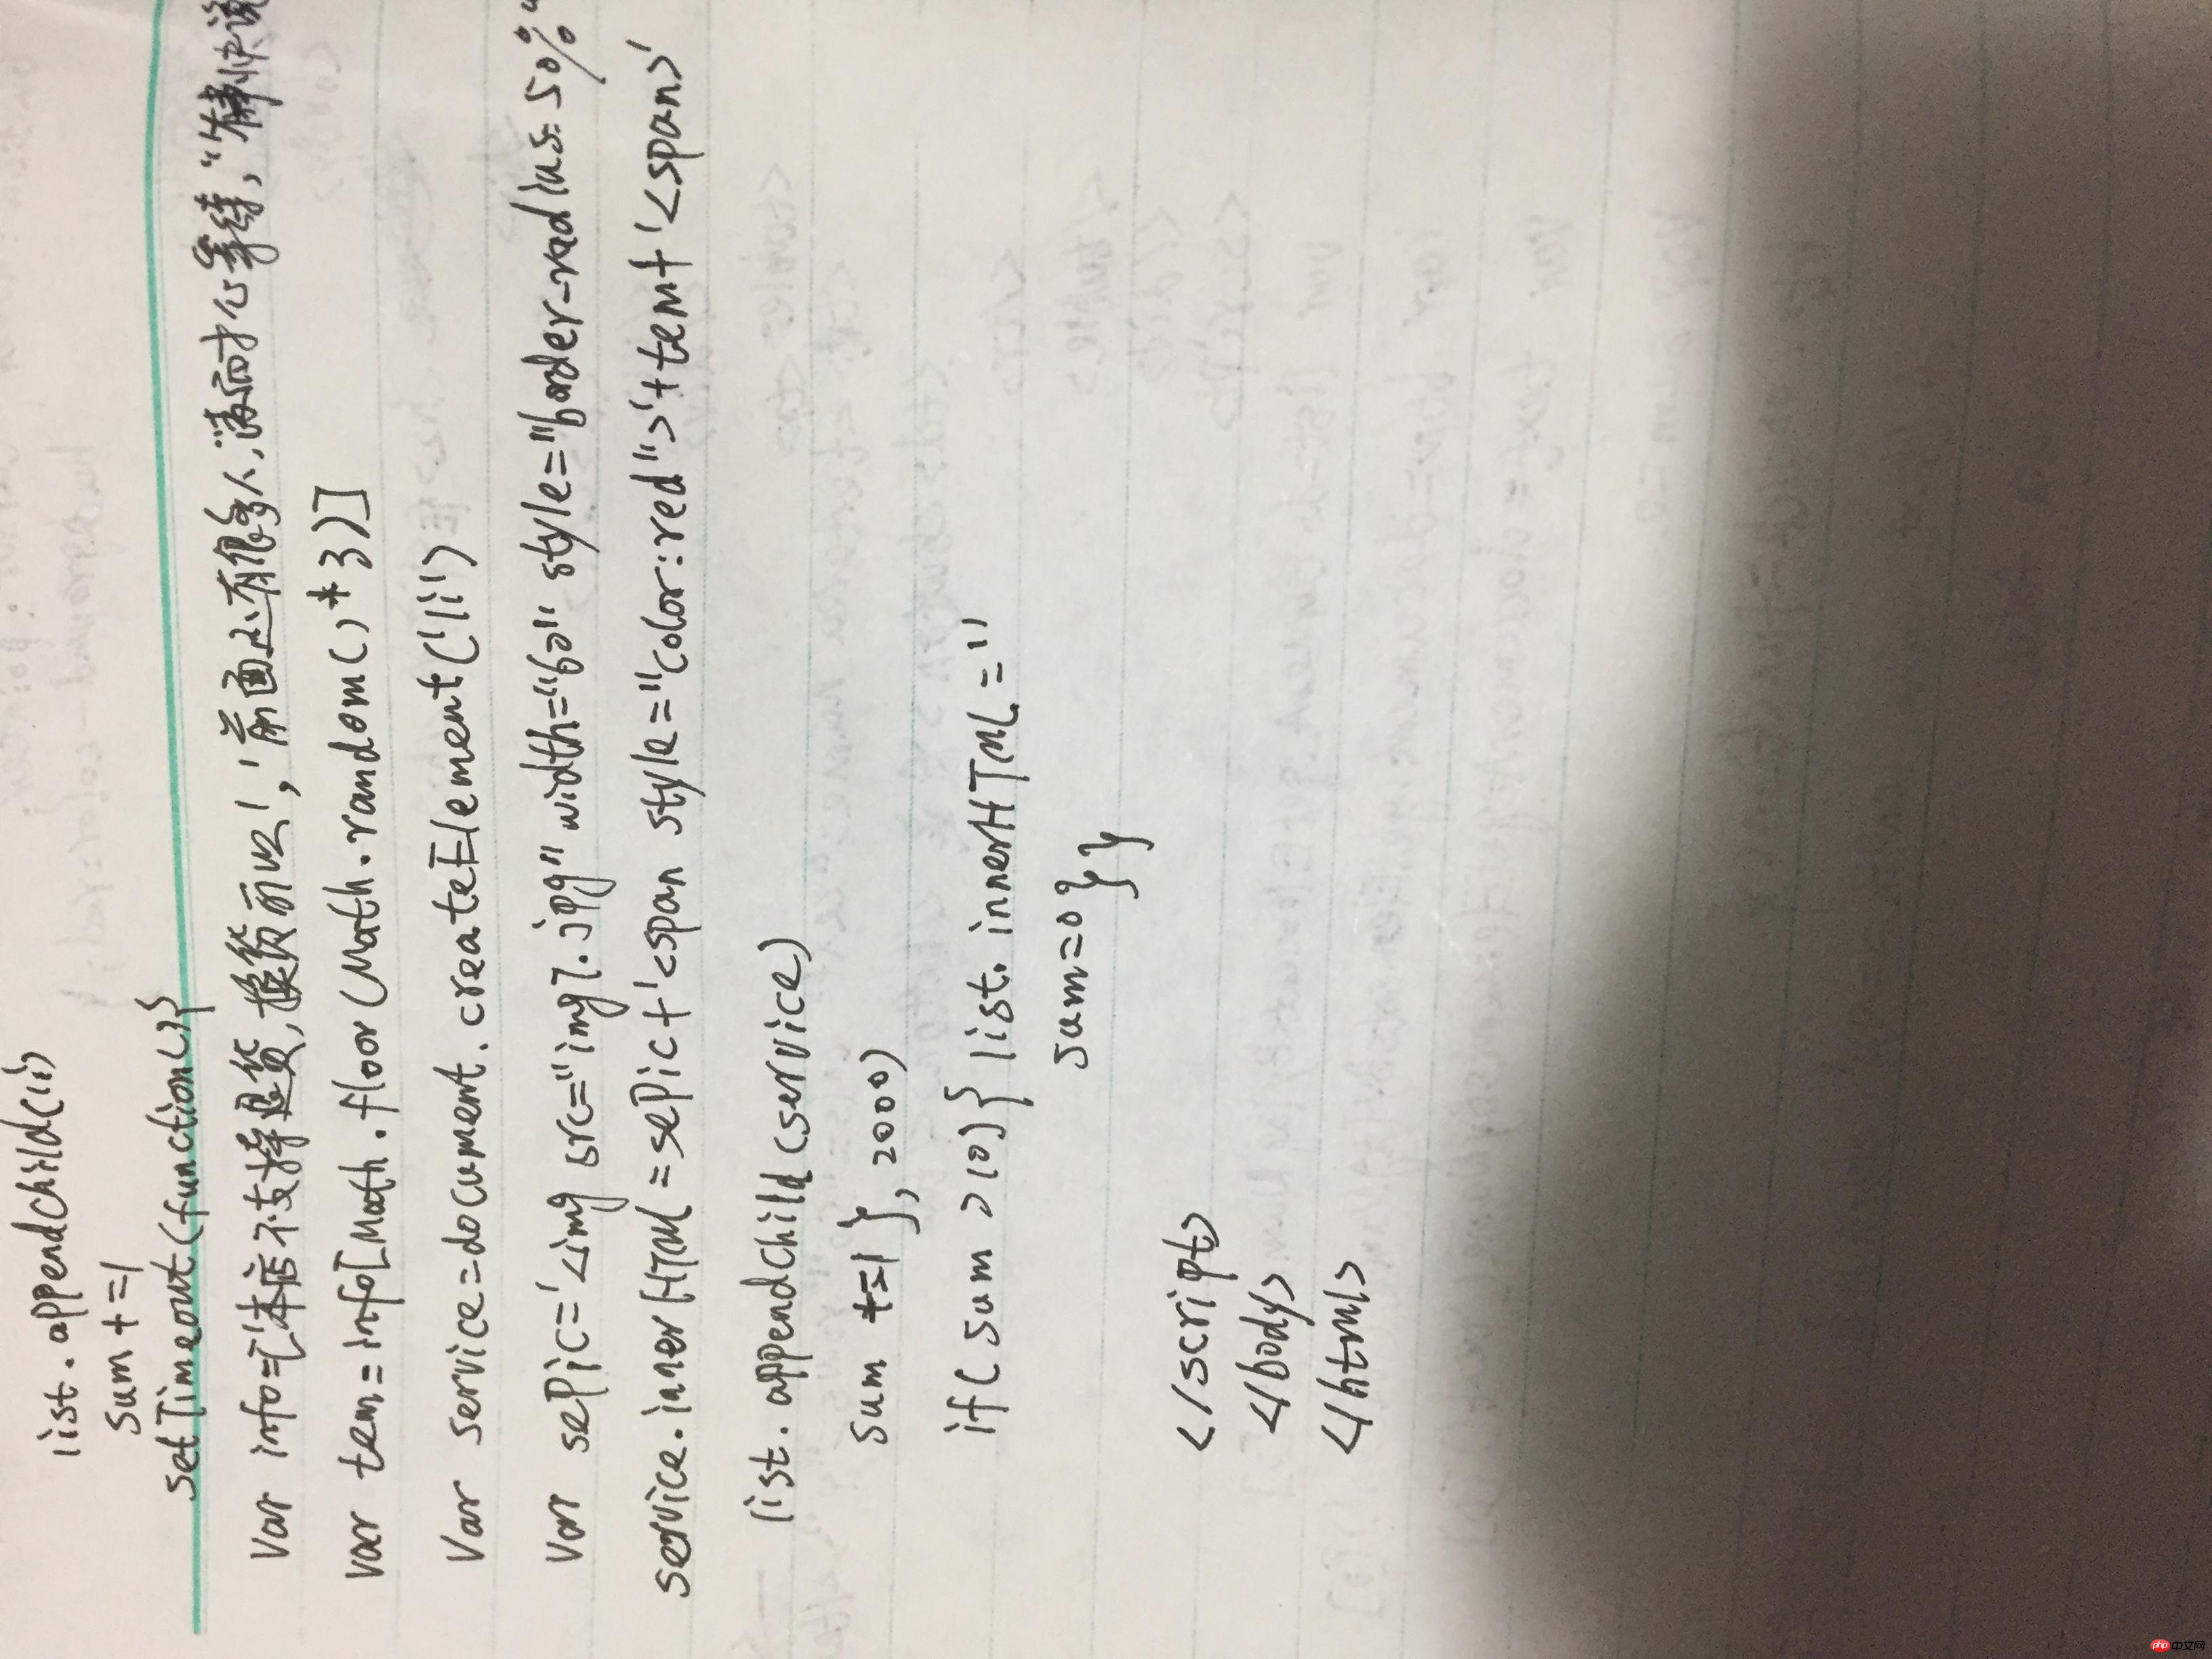 list.appendChild(li)
sum +=1
setTimeout(function(){
var info=['本店不支持退货,换货可以!','前面还有很多人,请耐心等待,'
var tem=info[Math.floor(Math.random()*3)]
var service=document.createElement('li')
var sePic='<img src="img7.jpg" width="60" style="border-radius:50%"
service.innerHTML=sePic+'<span style="color:red">'+tem+'<span>'
list.appendChild(service)
sum +=1 },2000)
if(sum >10){ list.innerHTML=''
sum=0}}
</script>
</body>
</html>
php中文网